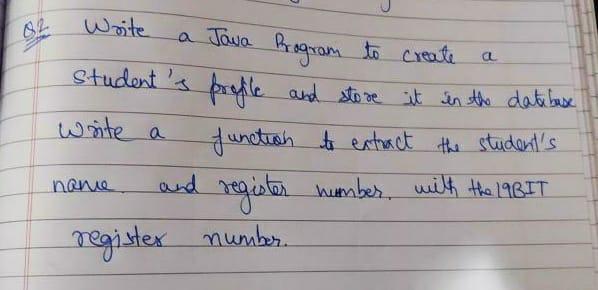 Q2 Write a Java Program to create a
student's profile and store it in the database
Write a function to extract the student's
name and register number. with the 19BIT
register number.